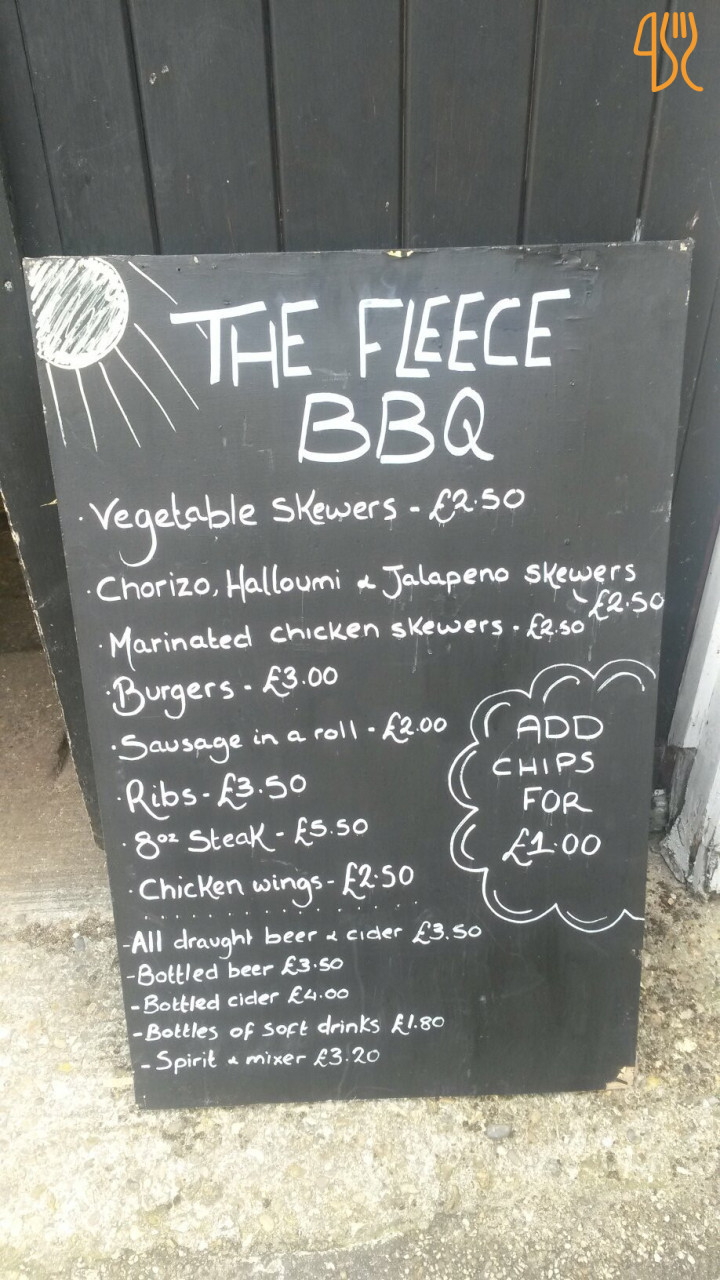 THE FLEECE
BBQ
· Vegetable Skewers - £2.50
· Chorizo, Halloumi & Jalapeno Skewers
- £2.50
· Marinated chicken skewers - £2.50
· Burgers - £3.00
· Sausage in a roll - £2.00
· Ribs - £3.50
· 8oz Steak - £5.50
· Chicken wings - £2.50
ADD
CHIPS
FOR
£1.00
- All draught beer & cider £3.50
- Bottled beer £3.50
- Bottled cider £4.00
- Bottles of soft drinks £1.80
- Spirit & mixer £3.20